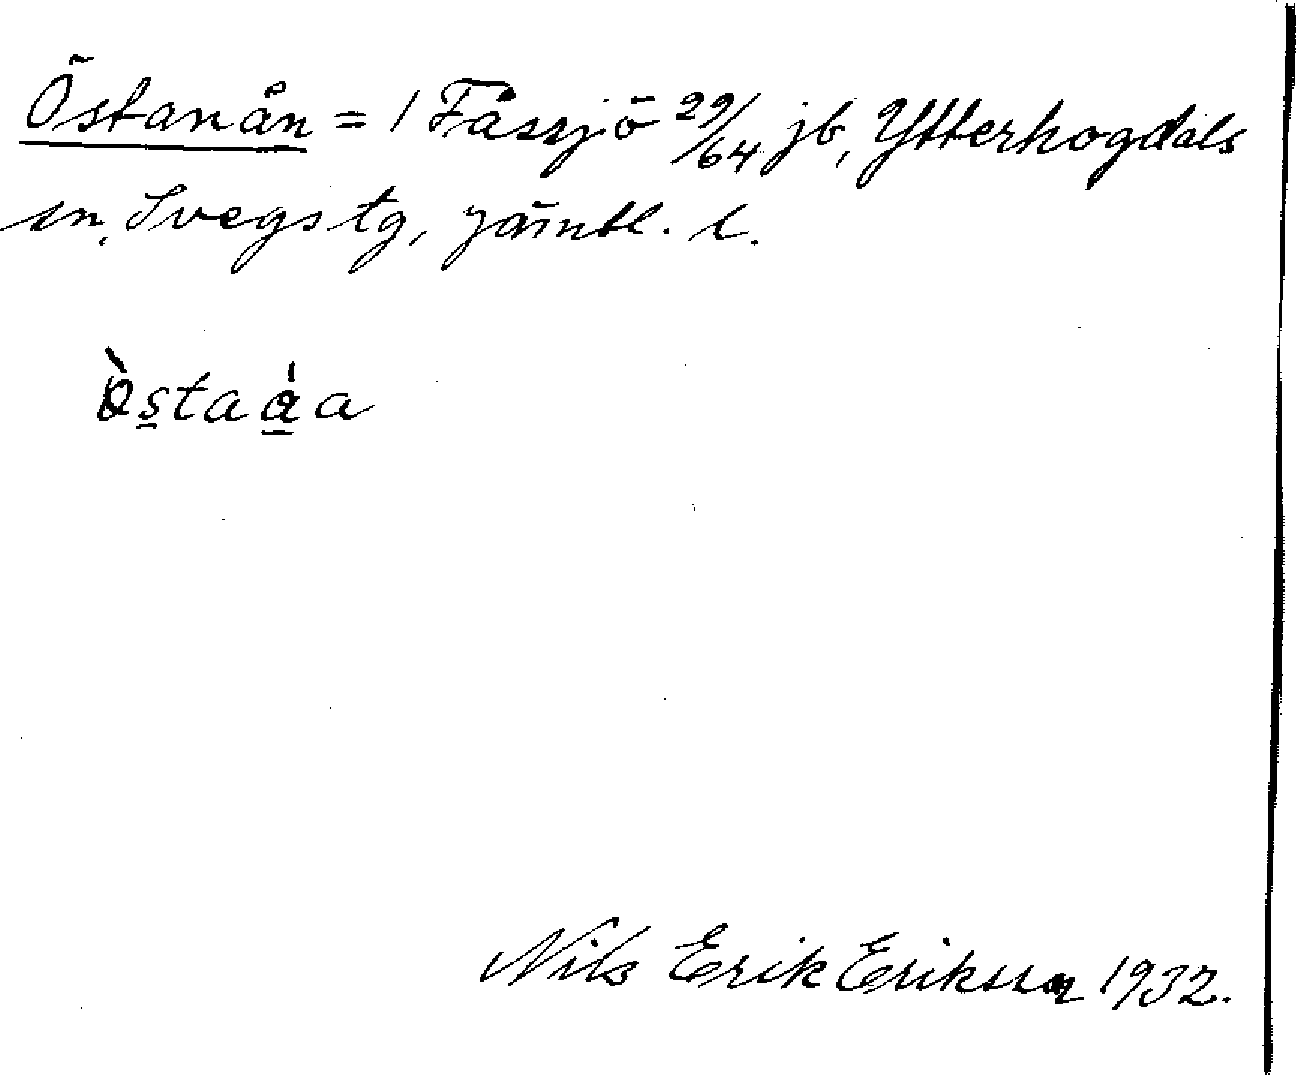 Östanån = 1 Fåssjö 29/64 jb, Ytterhogdals
sn, Svegs tg, Jämtl. l.
östaáa
Nils Erik Eriksson 1932.